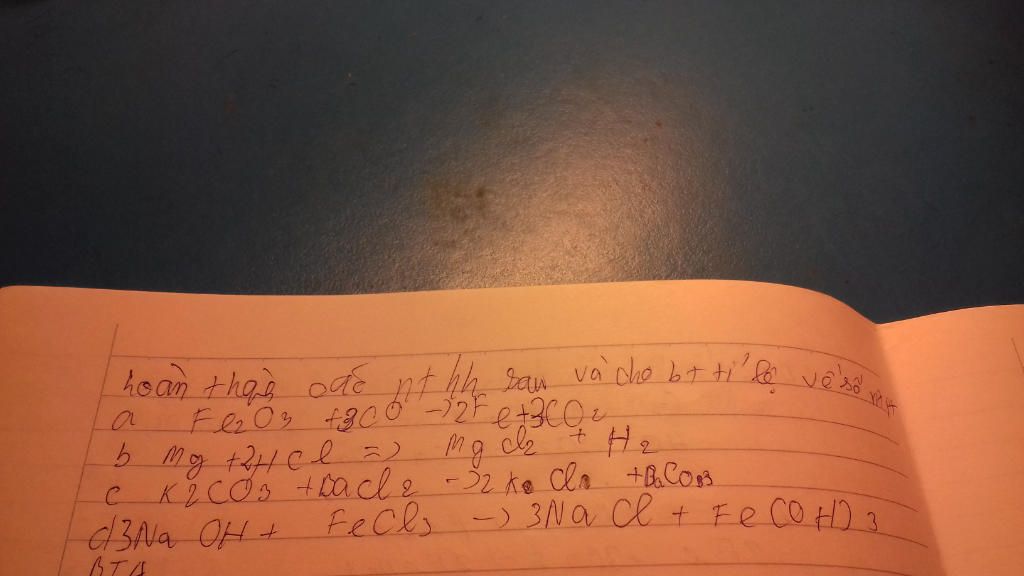 hoàn thành các pt hh sau và cho bt tỉ lệ về số
a Fe2O3 +3CO → 2Fe+3CO2
b Mg +2HCl => MgCl2 + H2
c K2CO3 +BaCl2 → 2KCl +BaCO3
d 3NaOH + FeCl3 → 3NaCl + Fe(OH)3